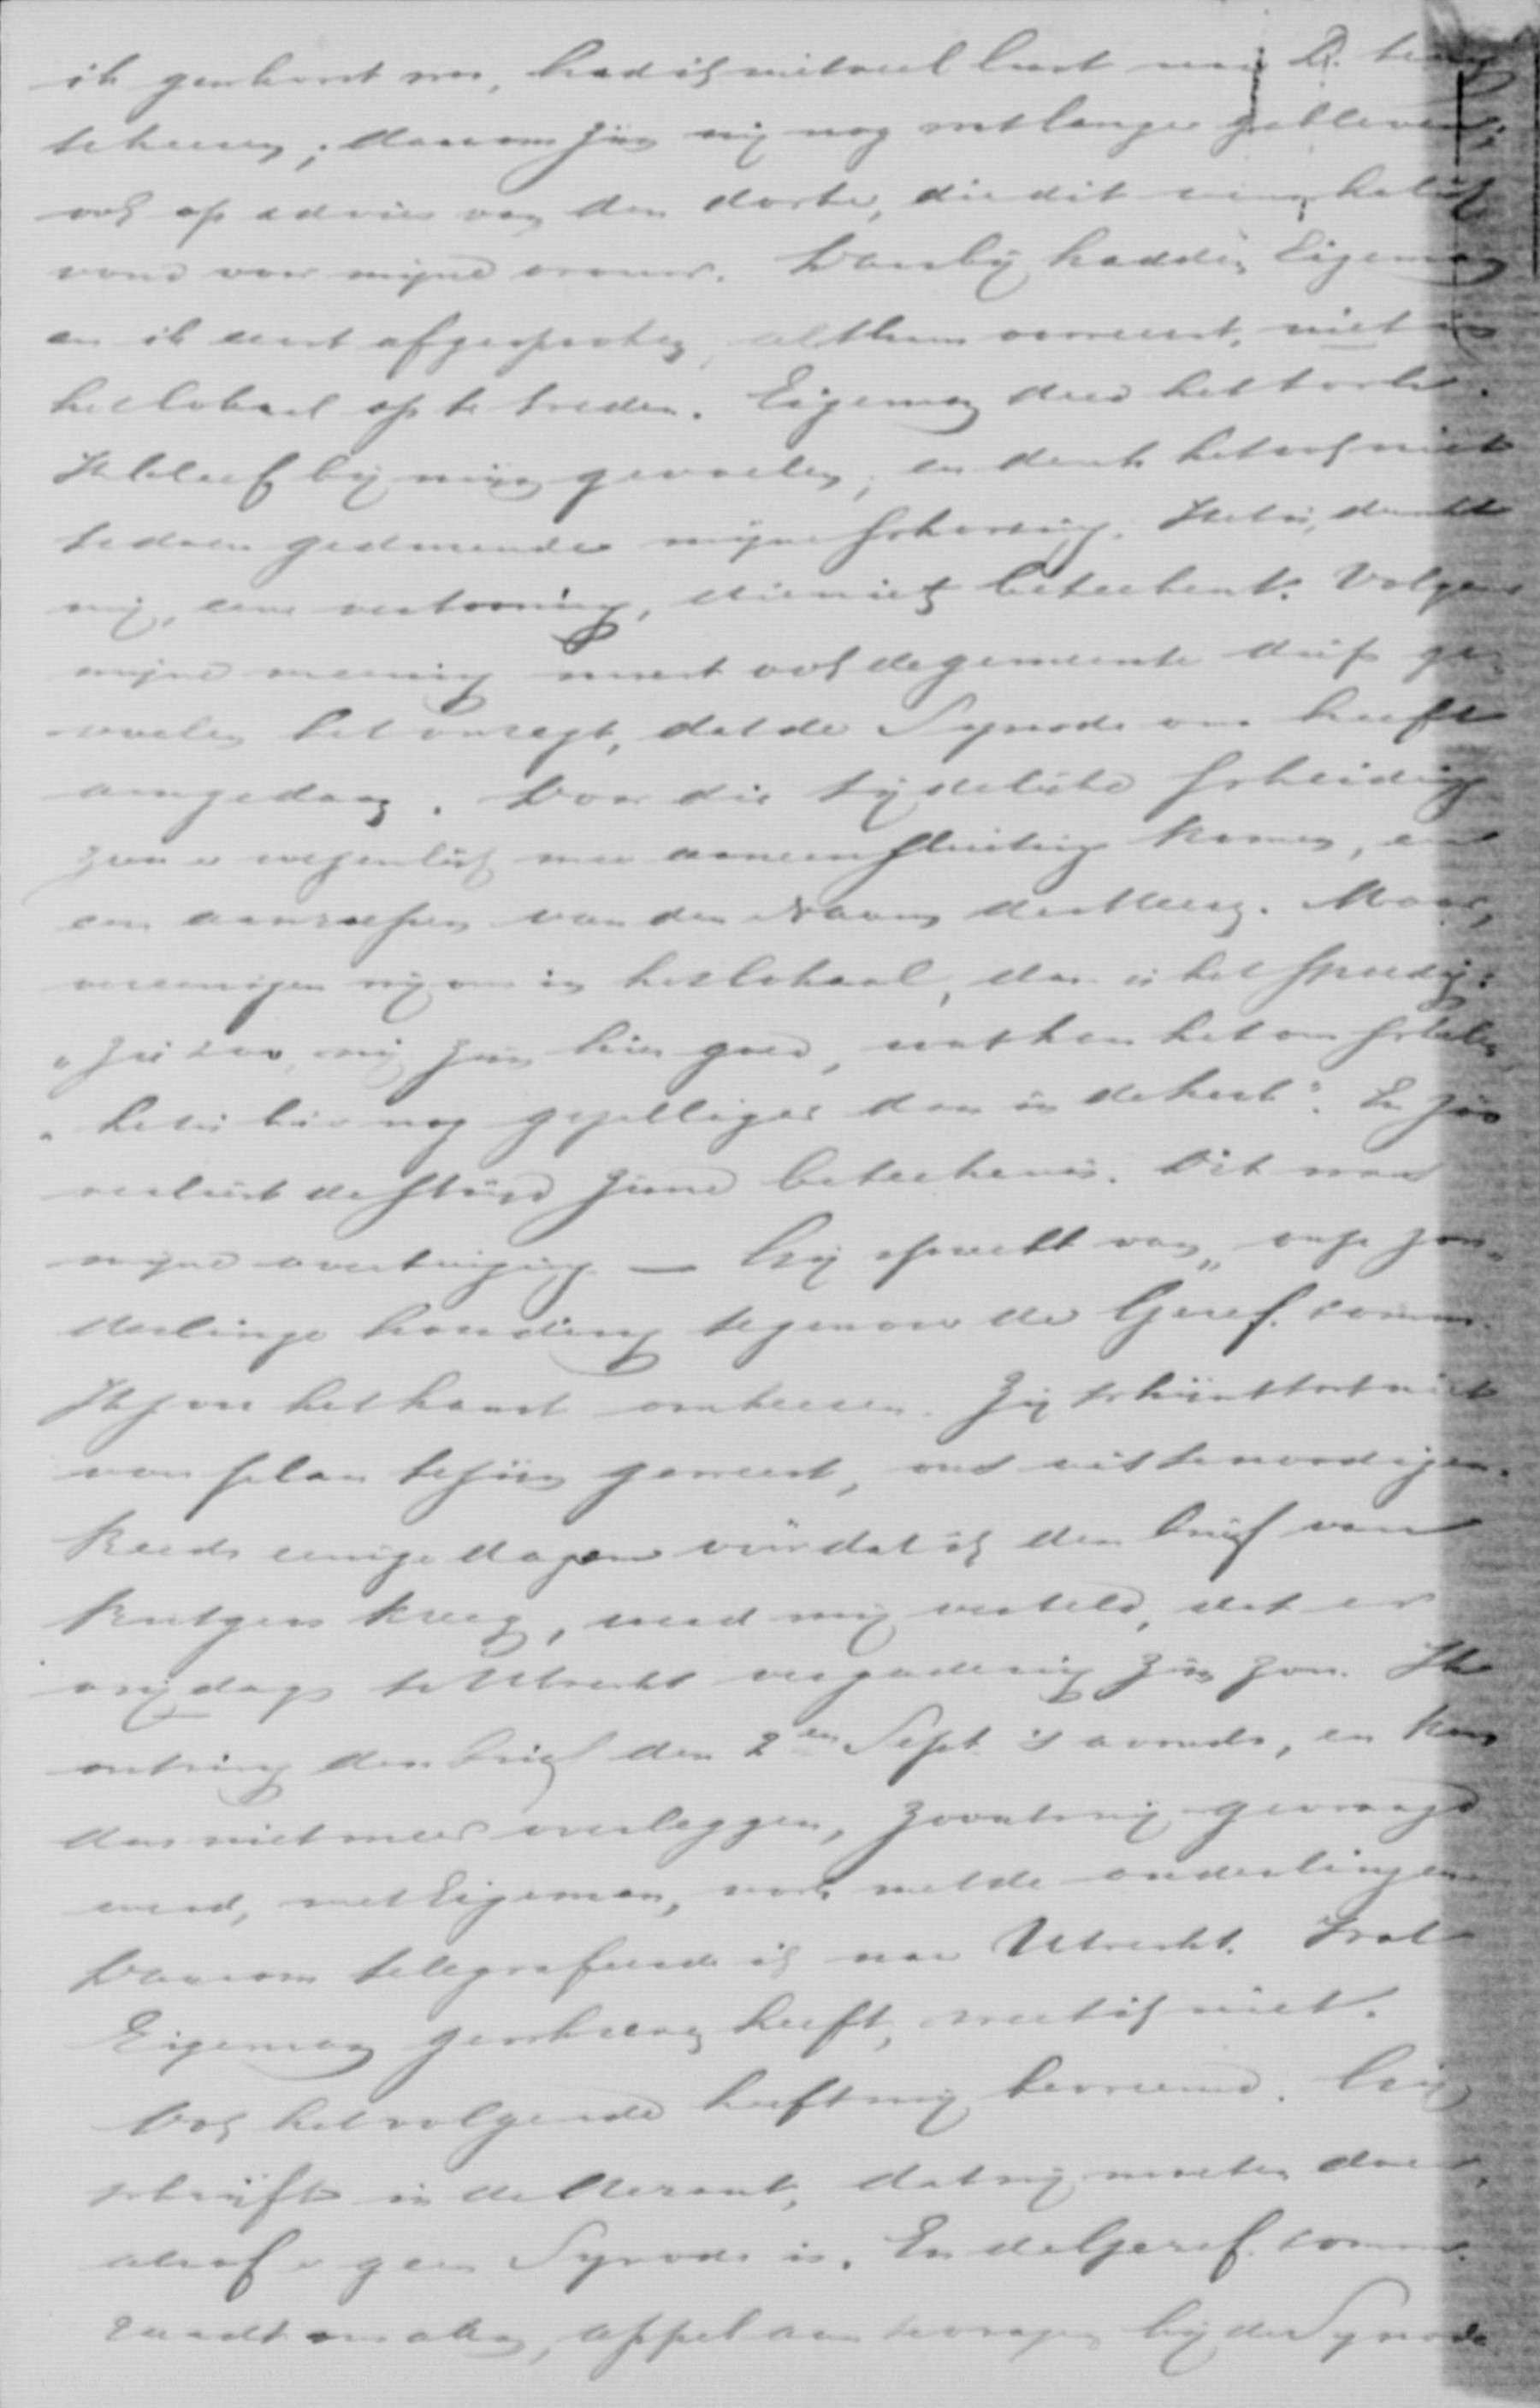 ik geschorst was, had ik niet veel lust naar D. terug
te keeren; daarom zijn wij nog wat langer gebleven;
ook op advies van den doctor, die dit wenschelijk
vond voor mijne vrouw. Daarbij hadden Eigeman
en ik eerst afgesproken, althans vooreerst, niet in
het lokaal op te treden. Eigeman deed het toch.
Ik bleef bij mijn gevoelen, en denk het ook niet
te doen gedurende mijne schorsing. Het is, dunkt
mij, eene vertooning, die niets beteekent. Volgens
mijne meening moest ook de gemeente diep ge-
voelen het onregt, dat de Synode ons heeft
aangedaan. Door die tijdelijke scheiding
zou er wezenlijk meer aaneensluiting komen, en
een aanroepen van den Naam des Heeren. Maar,
vereenigen wij ons in het lokaal, dan is het spoedig:
"ziezoo, wij zijn hier goed, wat kan het ons schelen,
"het is hier nog gezelliger dan in de kerk". En zoo
verliest de strijd zijne beteekenis. Dit was
mijne overtuiging. — Gij spreekt van "onze zon-
derlinge houding tegenover de Geref. comm.
Ik zou het haast omkeeren. Zij schijnt toch niet
van plan te zijn geweest, ons uit te noodigen.
Reeds eenige dagen vóórdat ik den brief van
Rutgers kreeg, werd mij verteld, dat er
vrijdags te Utrecht vergadering zijn zou. Ik
ontving den brief den 2en Sept. 's avonds, en kon
dus niet meer overleggen, zooals mij gevraagd
werd, met Eigeman, noch met de ouderlingen.
Daarom telegrafeerde ik naar Utrecht. Wat
Eigeman geschreven heeft, weet ik niet.
Ook het volgende heeft mij bevreemd. Gij
schrijft in de Heraut, dat wij moeten doen,
alsof er geen Synode is. En de Geref. comm.
raadt ons aan, appel aan te vragen bij de Synode